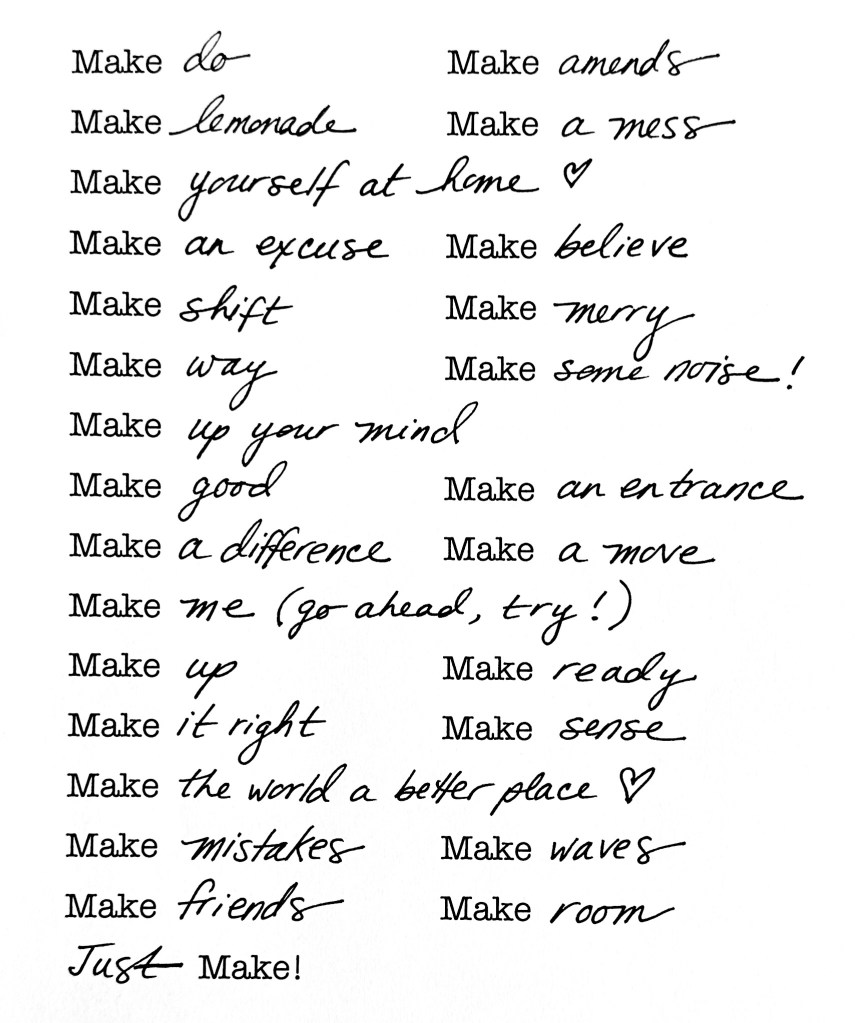 Make do Make amends
Make lemonade Make a mess
Make yourself at home ♡
Make an excuse Make believe
Make shift Make merry
Make way Make some noise!
Make up your mind
Make good Make an entrance
Make a difference Make a move
Make me (go ahead, try!)
Make up Make ready
Make it right Make sense
Make the world a better place ♡
Make mistakes Make waves
Make friends Make room
Just Make!